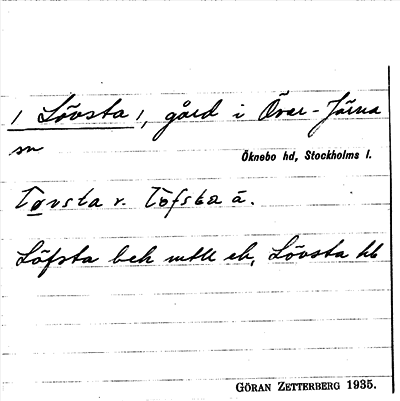 / Lövsta /, gård i Över-Järna
sn
Öknebo hd, Stockholms l.
Löfsta bek mtll ek, Lövsta hb
GÖRAN ZETTERBERG 1935.